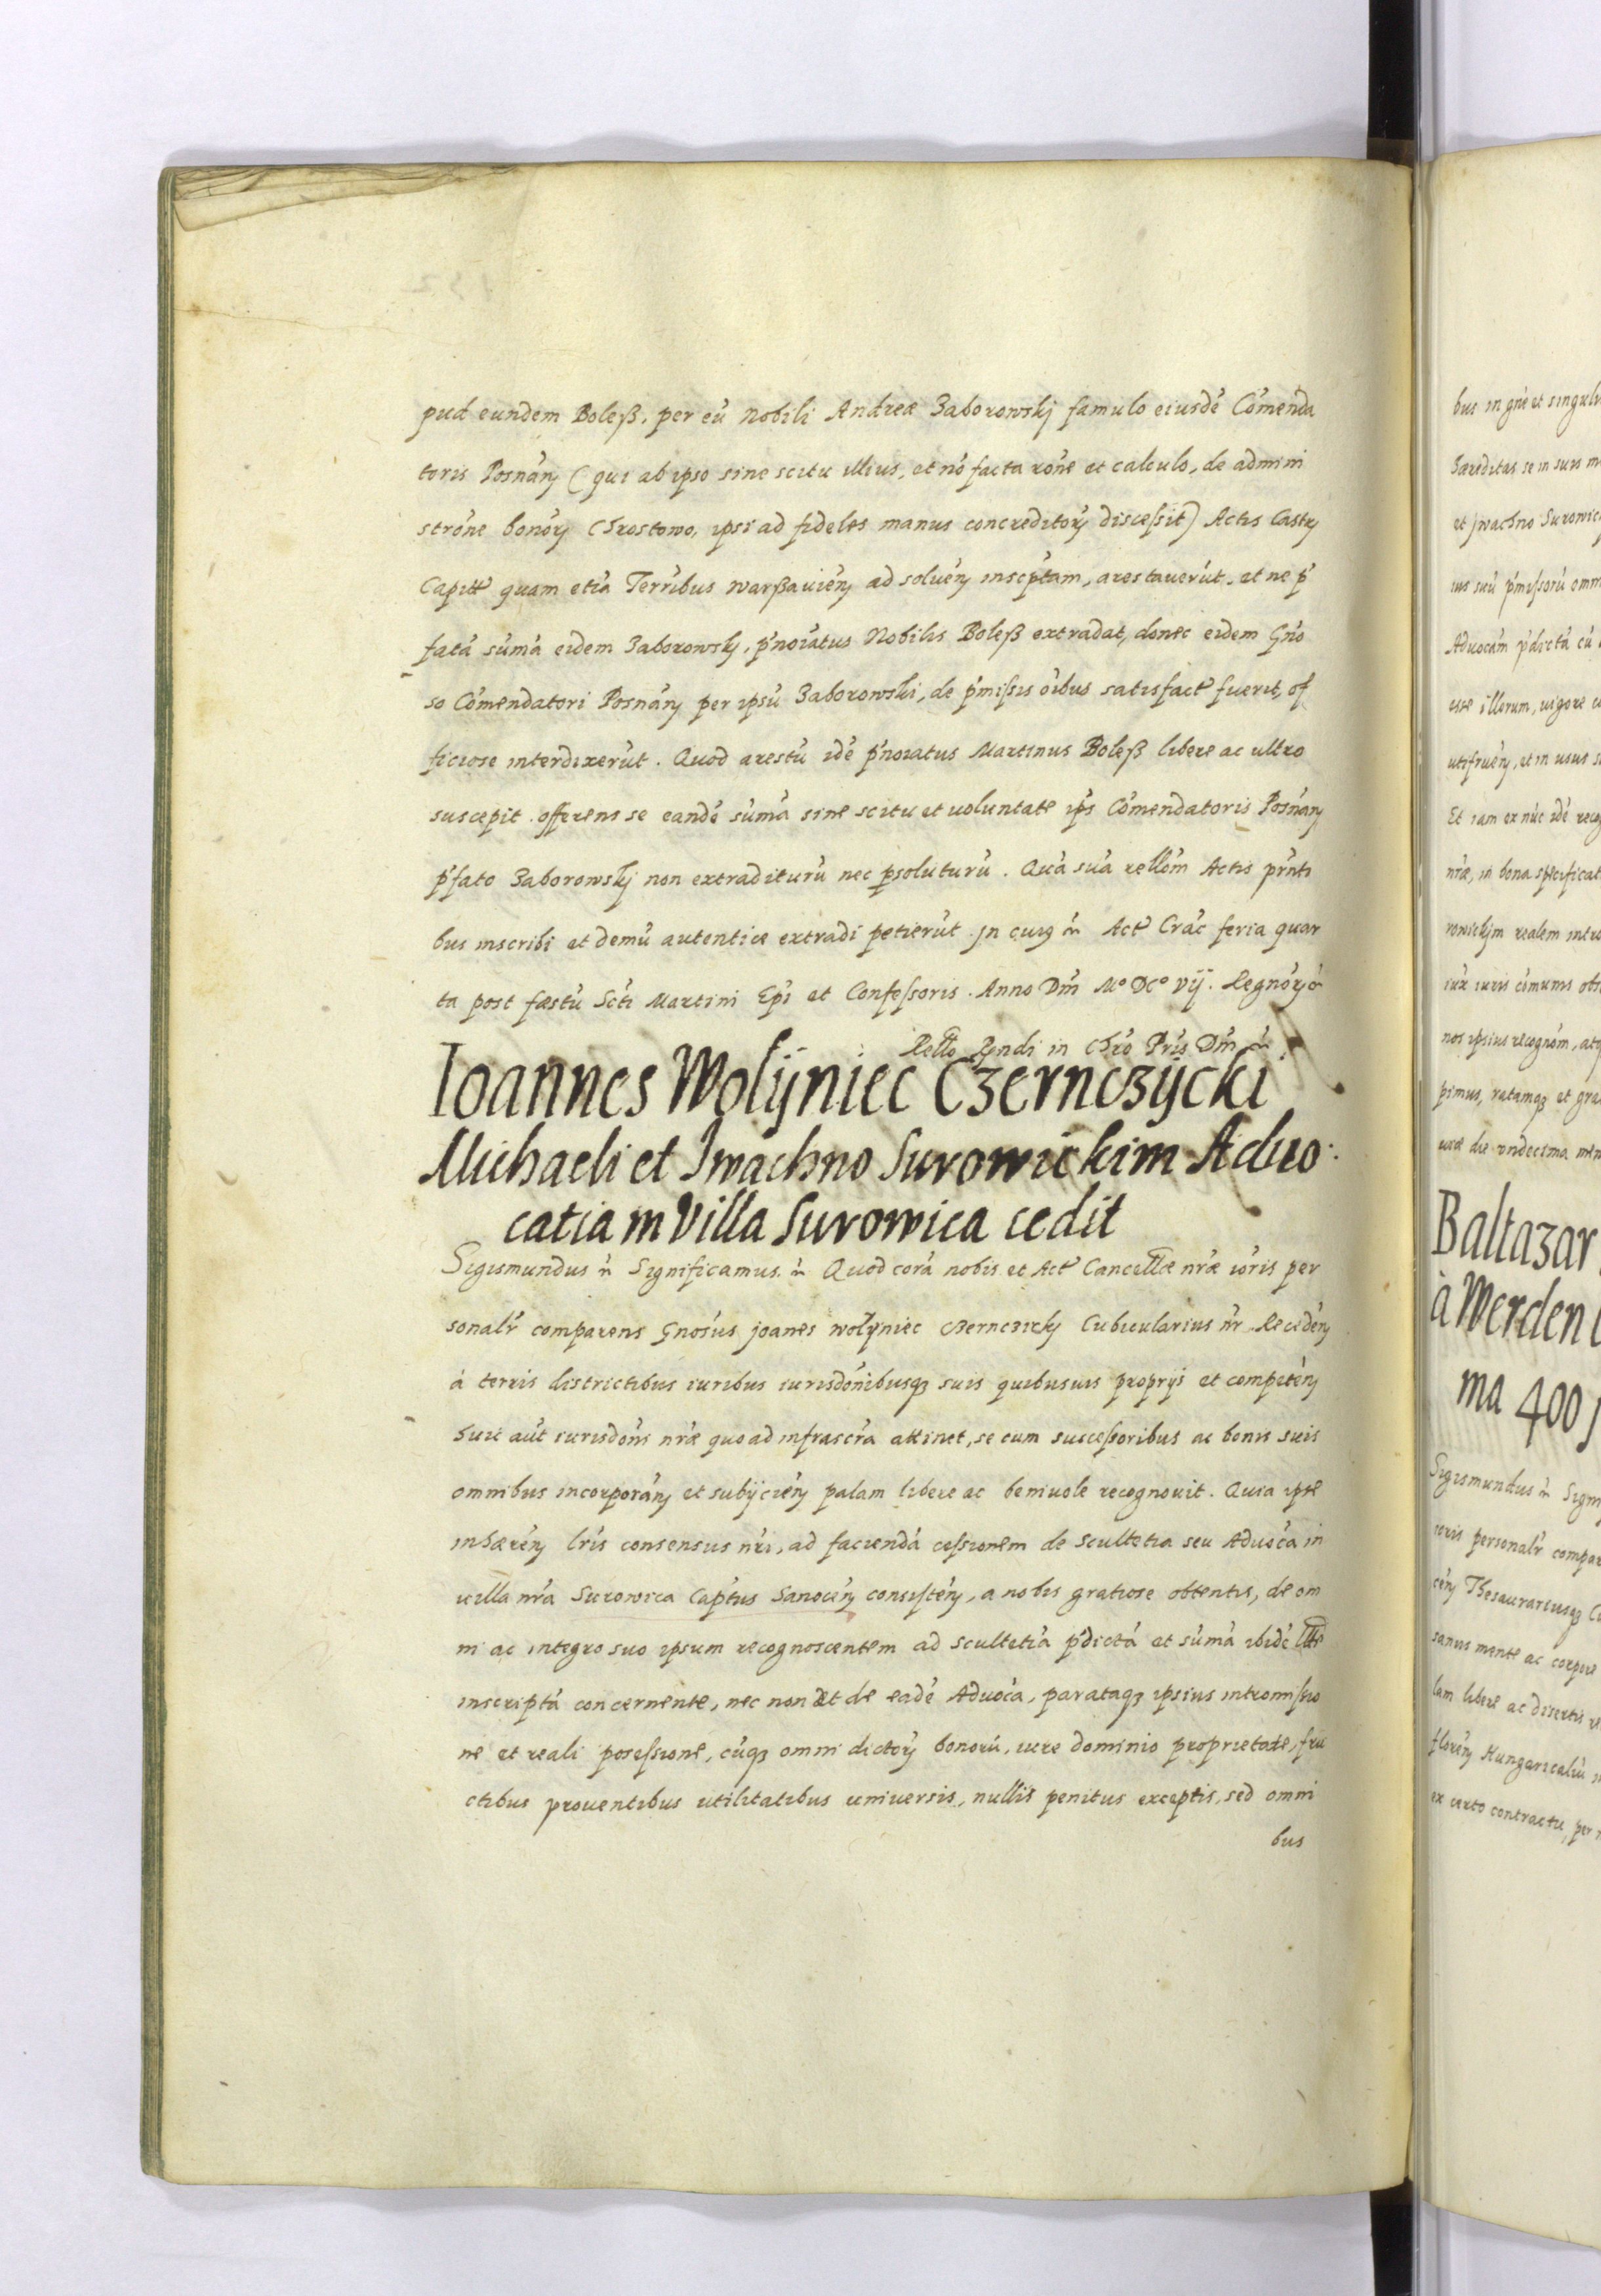 pud eundem Boleß, per eū Nobili Andreæ Zaborowskj famulo eiusdē Cōmenda
toris Posnān (qui ab ipso sine scitu illius, et nō facta rōne et calculo, de admini
strōne bonōr Chrostowo, ipsi ad fideles manus concreditōr discessit) Actis Castr
Capitt quam etiā Terribus warßauien ad soluen inscptam, arestauerūt, et ne p̄
fatā sūmā eidem Zaborowskj, p̄noiatus Nobilis Boleß extradat, donec eidem Gn̄o
so Cōmendatori Posnān per ipsū Zaborowski, de p̄missis oībus satisfact fuerit, of
ficiose interdixerūt. Quod arestū idē p̄noiatus Martinus Boleß libere ac ultro
suscepit. offerens se eandē sūmā sine scitu et uoluntate ip̄s Cōmendatoris Posnān
p̄fato Zaborowskj non extraditurū nec psoluturū. Quā suā rellōm Actis pr̄nti
bus inscribi et demū autentice extradi petierūt. Jn cuiq̢ Act Crāc feria quar
ta post fæstū Scti Martini Epī et Confessoris. Anno Dm̄ M° DC° vij. Regnōr
Rello Rndi in Chrō Prīs Dm̄
Ioannes Wolÿniec Czernczÿcki
Michaeli et Jwachno Surowickim Aduo
catiam Villa Surowica cedit
Sigismundus Significamus. Quod corā nobis et Act Cancellæ nræ ioris per
sonalr comparens Gnosus joanes wolÿniec Czernczicky Cubicularius nr̄ Receden
à terris districtibus iuribus iurisdōnibusq̢ suis quibusuis proprijs et competēn
Suæ aūt iurisdōnis nræ quo ad infrascrā attinet, se cum successoribus ac bonis suis
omnibus incorporān et subijciēn palam libere ac beniuole recognouit. Quia ipse
inhærēn lrīs consensus nri, ad faciendā cessionem de Scultetia seu Aduocā in
uilla nrā Surowica Capt̄us Sanocēn consistēn, a nobis gratiose obtentis, de om
ni ac integro suo ipsum recognoscentem ad scultetiā p̄dictā et sūmā ibidē
inscriptā concernente, nec non et de eadē Aduocā, parataq̢ ipsius intromissio
ne et reali posessione, cūq̢ omni dictōr bonorū, iure dominio proprietate, fru
ctibus prouentibus utilitatibus uniuersis, nullis penitus exceptis, sed omni
bus
bus in gne et singul
Hæreditas se in suis
et jwachno Surowic
ius suū p̄missorū omn
Aduocām p̄dictā cū
esse illorum, uigore
utifruēn, et in usus
Et iam ex nūc idē recog
nræ, in bona specificat
rowickjm realem intro
iux iuris cōmunis
nos ipsius recognōm, atq
pimus, ratamq̢ et gra
uræ die vndecima men
Baltazar
à Werden
ma 400
Sigismundus Signi
ioris personalr compar
cēn Thesaurariusq̢
sanus mente ac corpore
lam libere ac disertis re
florēn Hungaricaliū
ex certo contractu, per